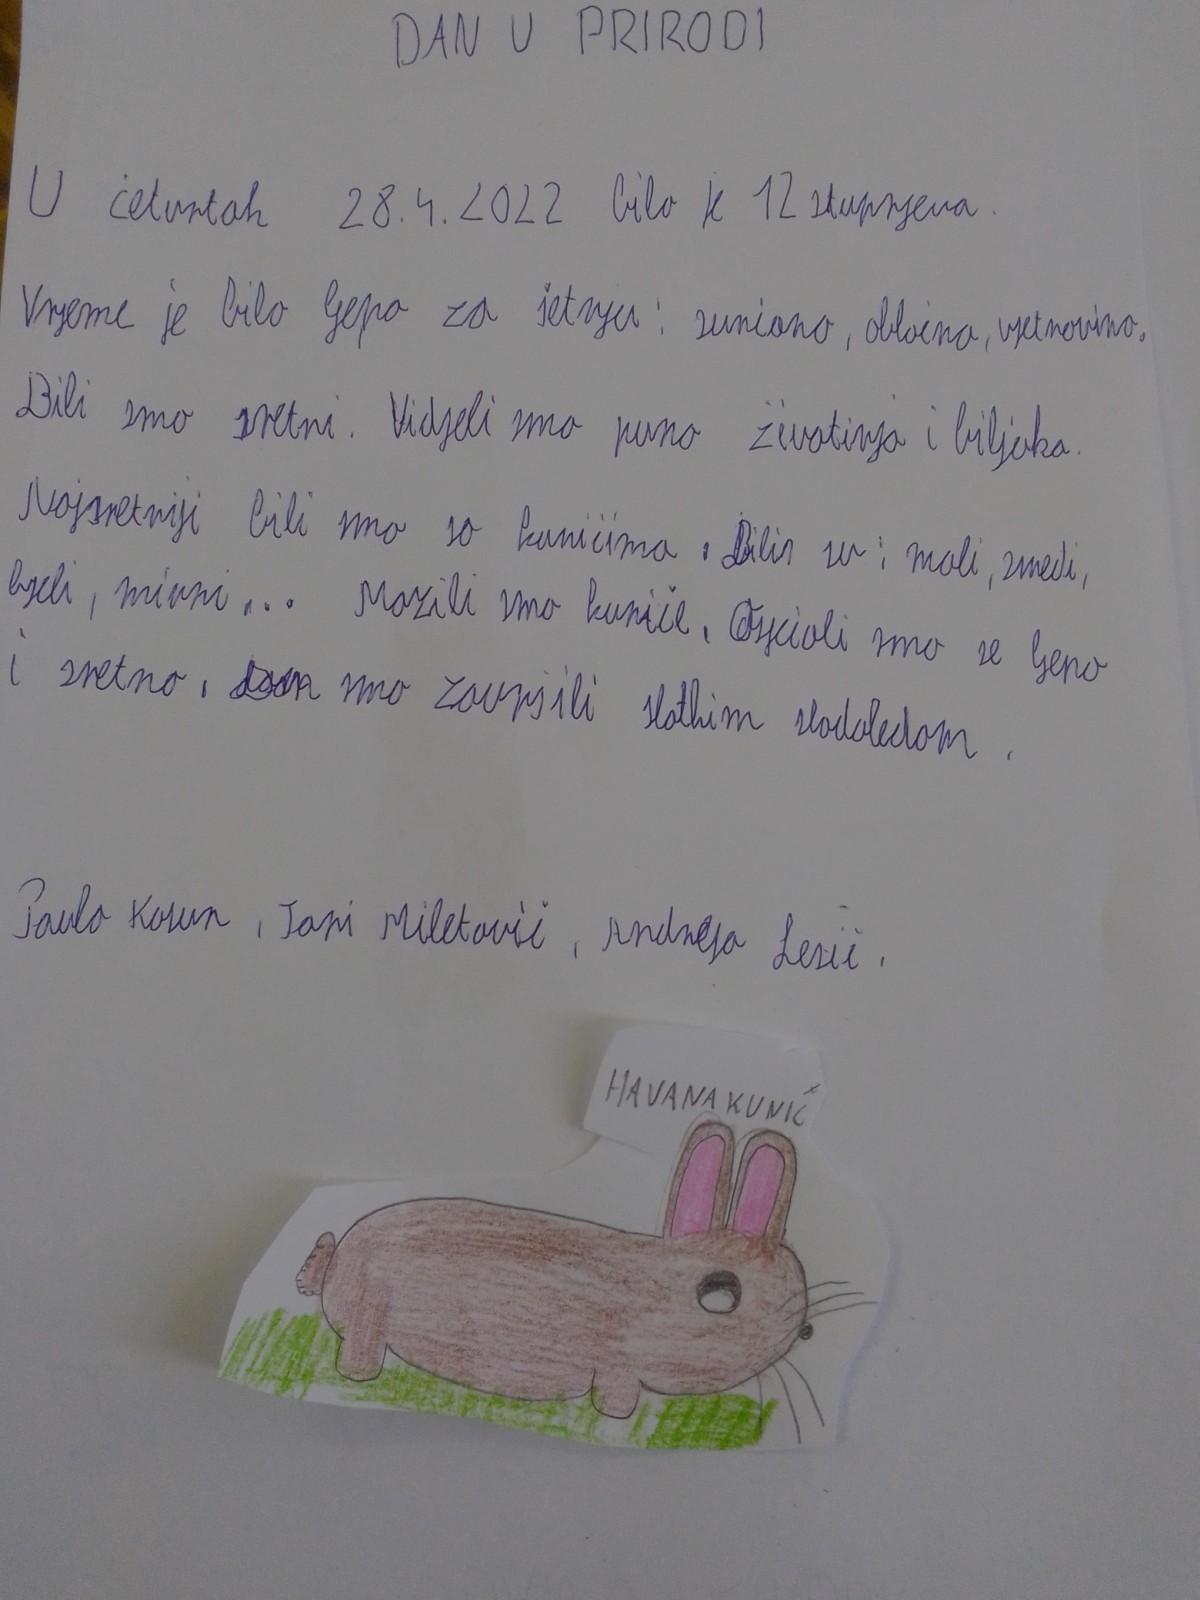 DAN U PRIRODI
U četvrtak 28.4.2022 bilo je 12 stupnjeva.
Vrjeme je bilo ljepo za šetnju: sunčano, oblačno, vjetrovino.
Bili smo sretni. Vidjeli smo puno životinja i biljaka.
Najsretniji bili smo sa kunićima. Bili su: mali, smeđi,
bjeli, mirni... Mazili smo kuniće. Osjećali smo se ljepo
i sretno. Dan smo zavrsili slatkim sladoledom.
Paula Kosun, Tani Miletović, Andreja Lesić.
HAVANA KUNIĆ